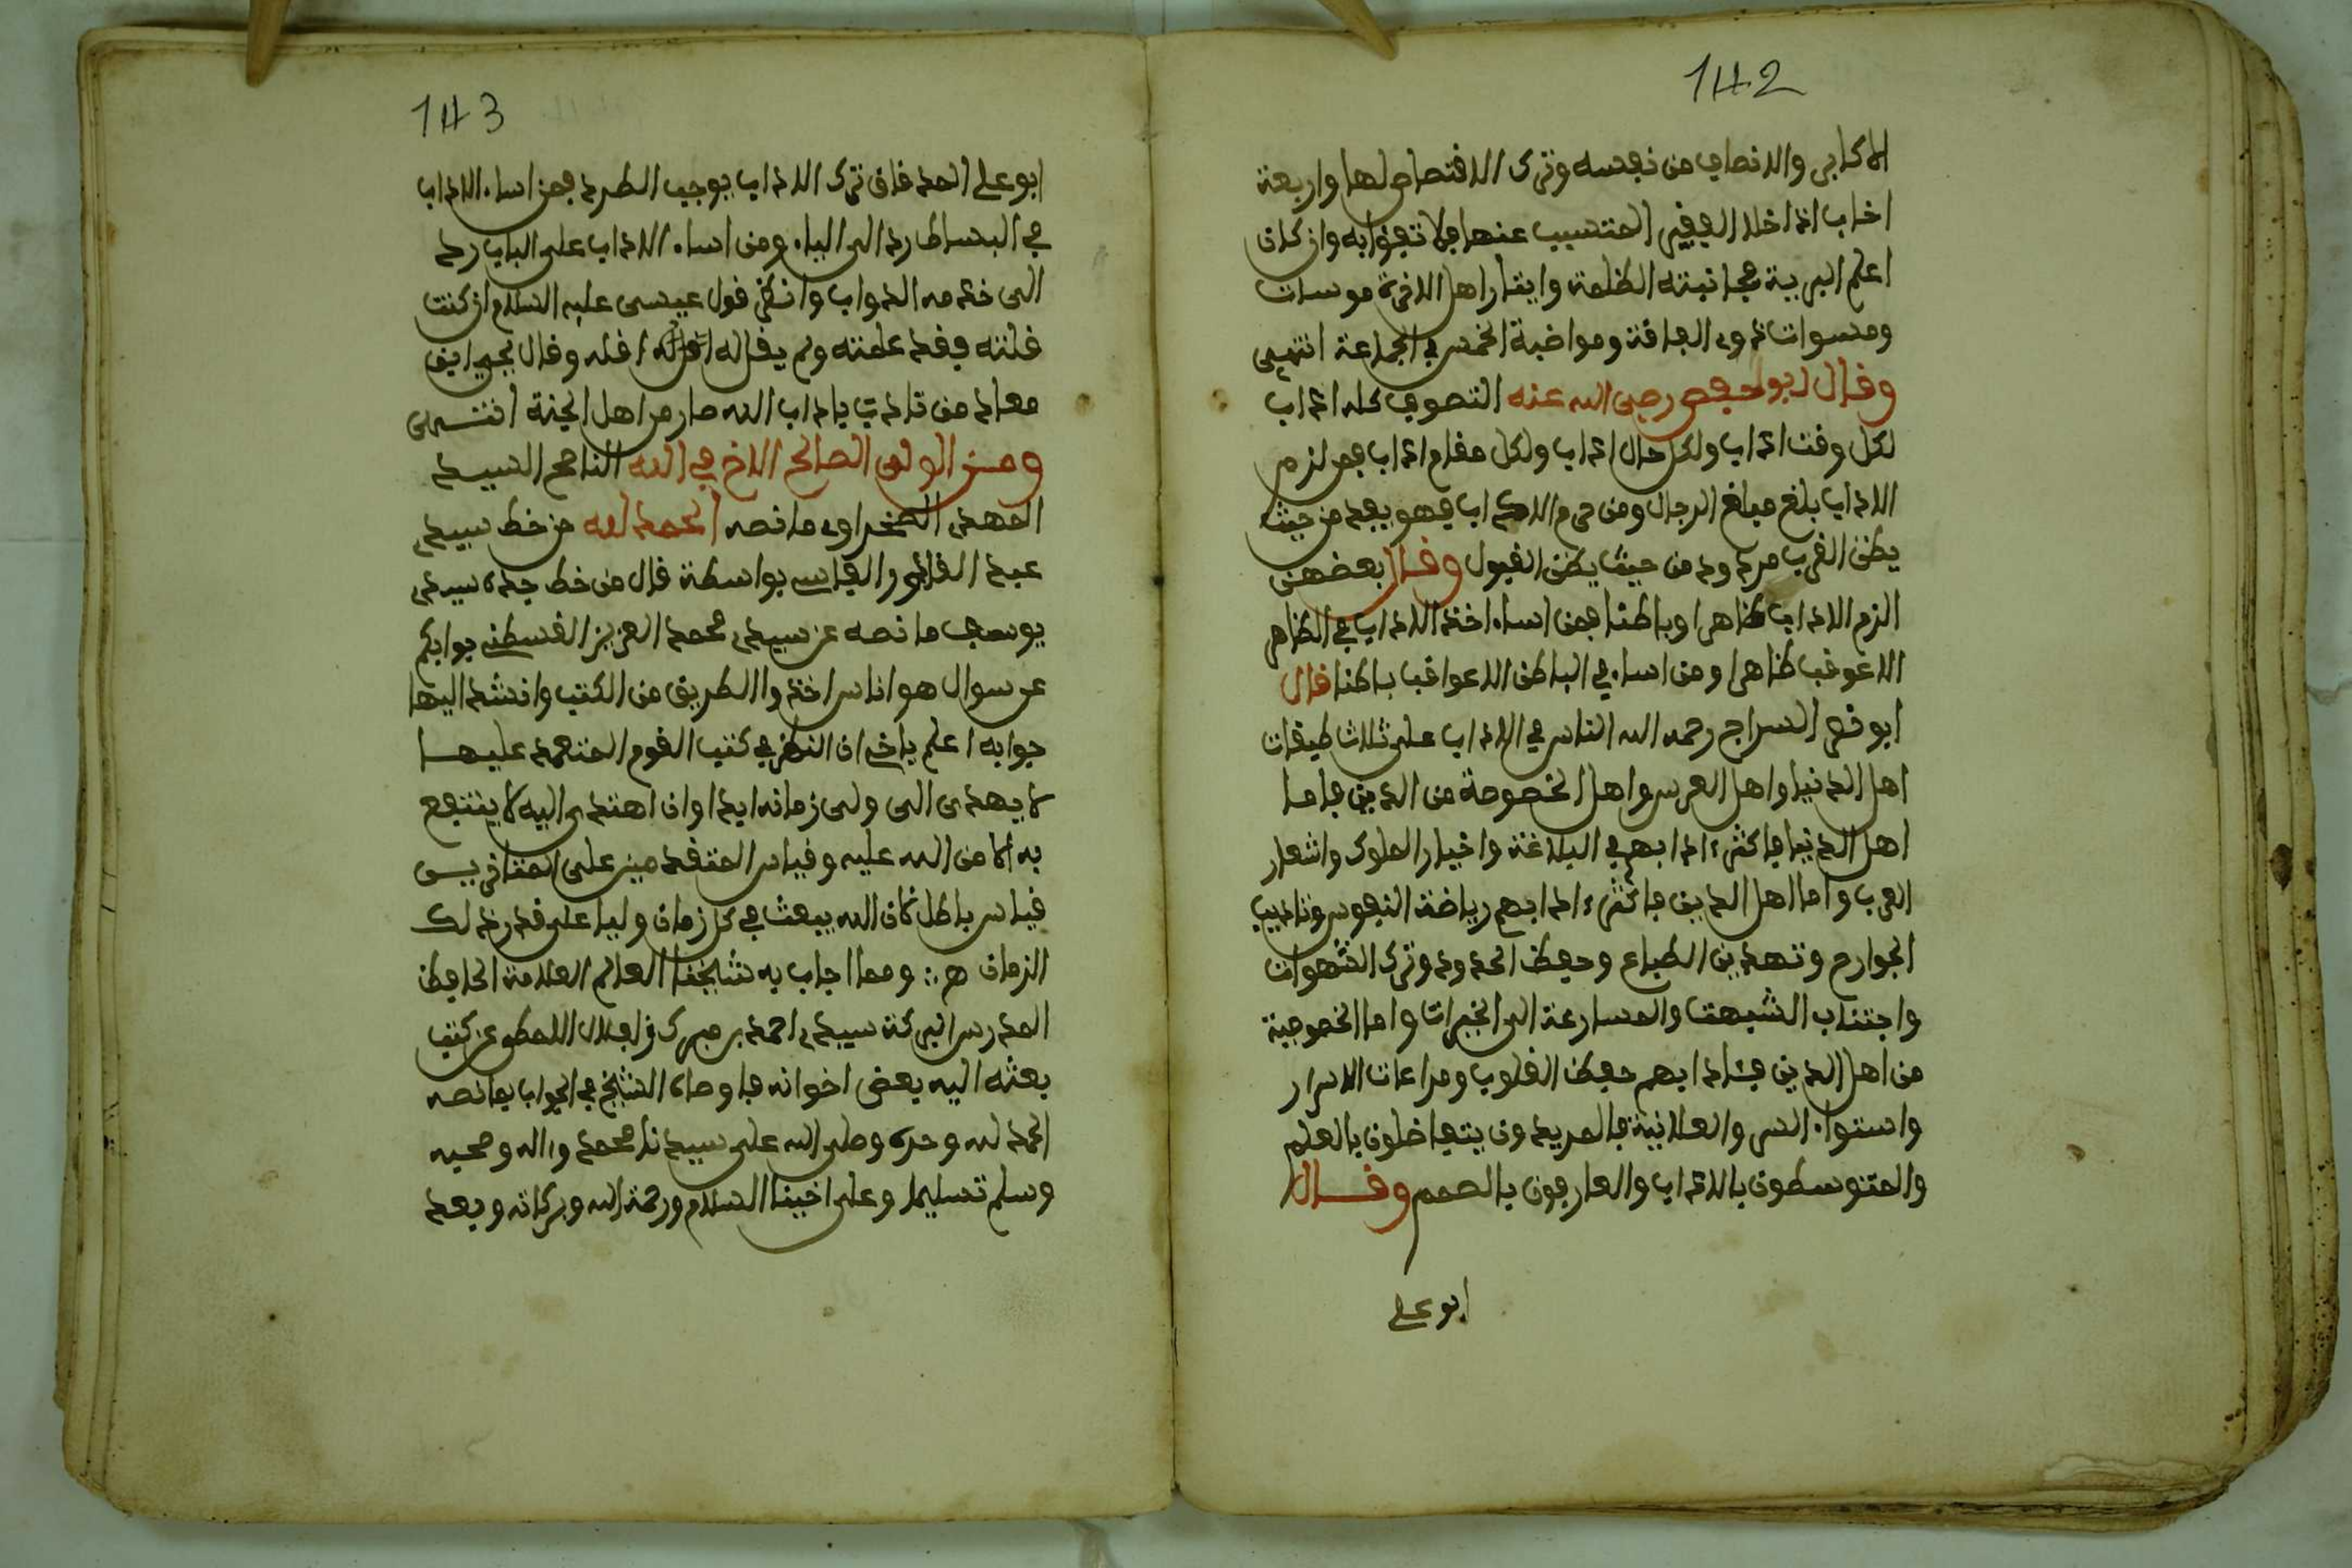 142
الاكابر والانصاف من نفسه وترك الاقتصاص لها واربعة
اداب اذا خلا الفقير المتسبب عنها فلا تعبوا به وان كان
اعلم البرية مجانبته الظلمة وايثار اهل الاخرة موسات
ومسوات ذوى الفاقة ومواضبة الخمس في الجماعة انتهى
وقال ابو حفص رضى الله عنه التصوف كله اداب
لكل وقت اداب ولكل حال اداب ولكل مقام اداب فمن لزم
الاداب بلغ مبلغ الرجال ومن حرم الاداب فهو يبعد من حيث
يظن القرب مردود من حيث يظن القبول وقال بعضهم
الزم الاداب ظاهرا وباطنا فمن اساء اخذ الاداب في الظاهر
الا عوقب ظاهرا ومن اساء في الباطن الا عوقب باطنا قال
ابو نصر السراج رحمه الله الناس في الاداب على ثلاث طبقات
اهل الدنيا واهل العرس واهل الخصوصة من الدين فاما
اهل الدنيا فاكثر ءادابهم في البلاغة واخبار الملوك واشعار
العرب واما اهل الدين فاكثر ءادابهم رياضة النفوس وتاديب
الجوارح وتهذيب الطباع وحفظ الحدود وترك الشهوات
واجتناب الشبهت والمسارعة الى الخيرات واما الخصوصية
من اهل الدين فئادابهم حفظ القلوب ومراعات الاسرار
واستواء السر والعلانية فالمريدون يتفاضلون بالعلم
والمتوسطون بالاداب والعارفون بالهمم وقال
ابو على
143
ابو على الحد فان ترك الاداب يوجب الطرد فمن اساء الاداب
في البساط رد الى الباب ومن اساء الاداب على الباب رد
الى خدمه الدواب وانظر قول عيسى عليه السلام ان كنت
قلته فقد علمته ولم يقل له اقله وقال يحيى ابن
معاذ من تادب باداب الله صار من اهل الجنة انتهى
ومن الولى الصالح الاخ في الله الناصح السيد
المهدى الصخراوى ما نصه الحمد لله من خط سيدى
عبد القادر الفاسى بواسطة قال من خط جده سيدى
يوسف ما نصه عن سيدى محمد العزيز القسطنى جوابكم
عن سوال هو اناس اخذوا الطريق من الكتب وانشد اليها
جوابه اعلم ياخى ان النظر في كتب القوم المتعمد عليها
لا يهدى الى ولى زمانه ابدا وان اهتدى اليه لا ينتفع
به الا من الله عليه وقياس المتقدمين على المتاخريس
قياس باطل فان الله يبعث في كل زمان وليا على قدر ذلك
الزمان ه ومما اجاب به شيخنا العالم العلامة الحافظ
المدرس البركة سيدى احمد بن مبرك اللمطى عن كتب
بعثه اليه بعض اخوانه فاوصاه الشيخ في الجواب بمانصه
الحمد لله وحده وصلى الله على سيدنا محمد وءاله وصحبه
وسلم تسليما وعلى اخينا السلام ورحمة الله وبركاته وبعد